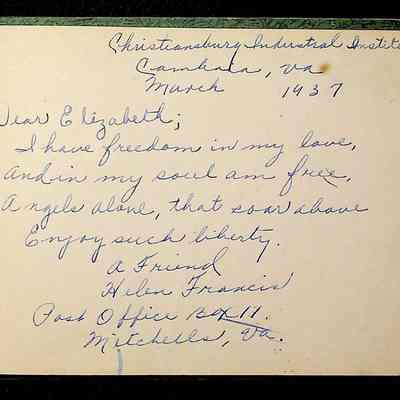 Christiansburg Industrial Institute
Cambria, Va
March 1937
Dear Elizabeth;
I have freedom in my love,
And in my soul am free,
Angels alone, that soar above
Enjoy such liberty.
A Friend
Helen Francis
Post Office Box 11.
Mitchells, Va.